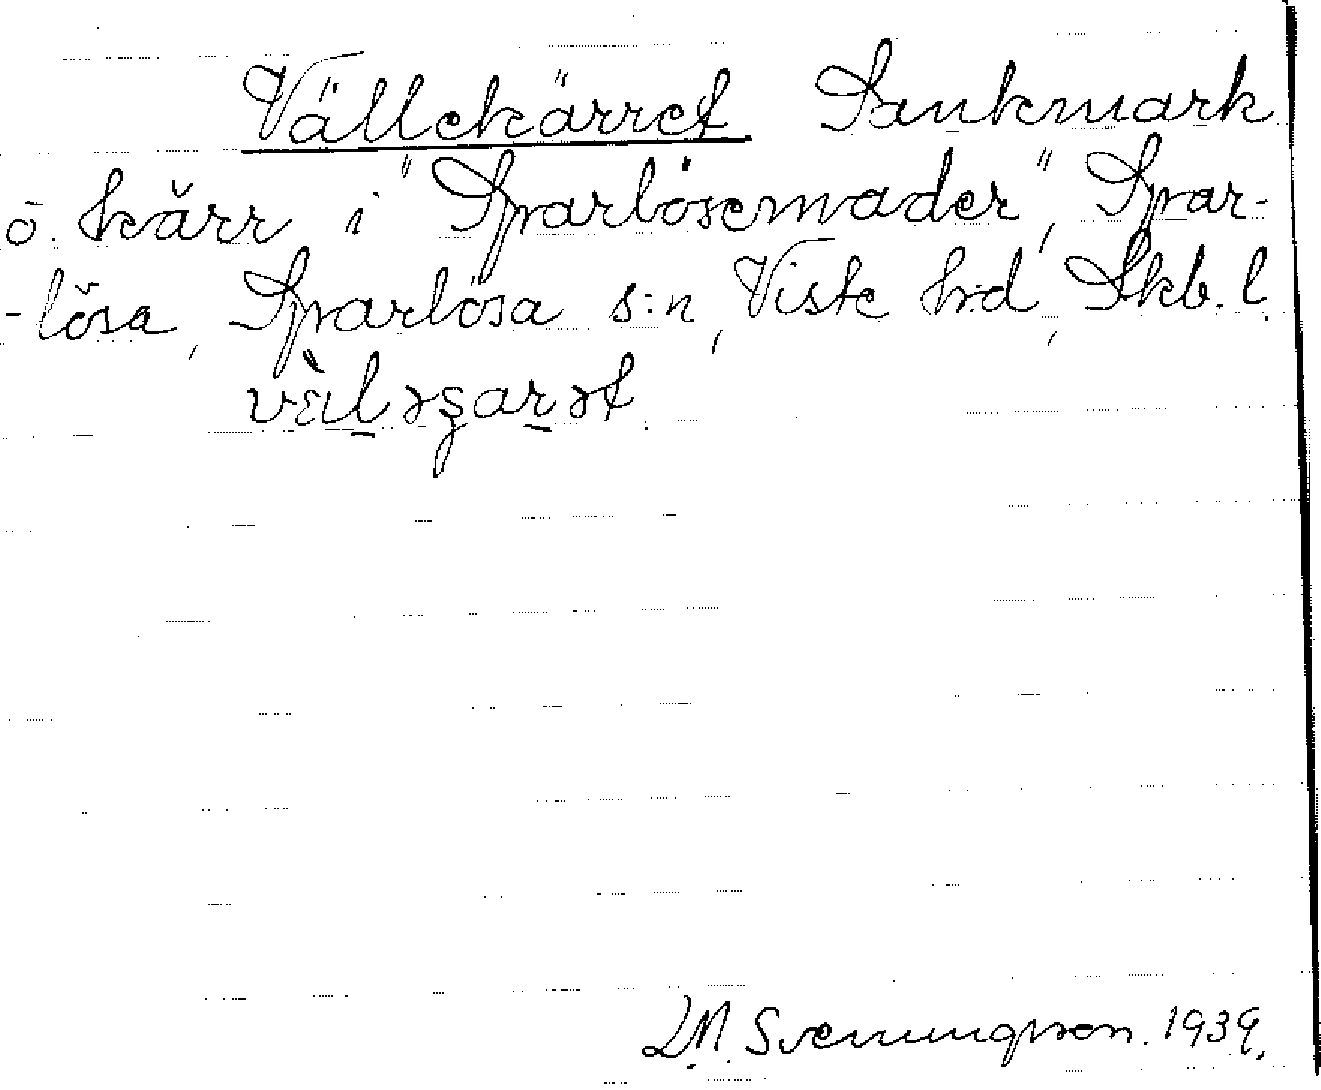 Vällekärret Sankmark
o. kärr i "Sparlösemader", Spar-
-lösa, Sparlösa s:n, Viste hd, Skb. l.
L.M. Svenungsson. 1939.